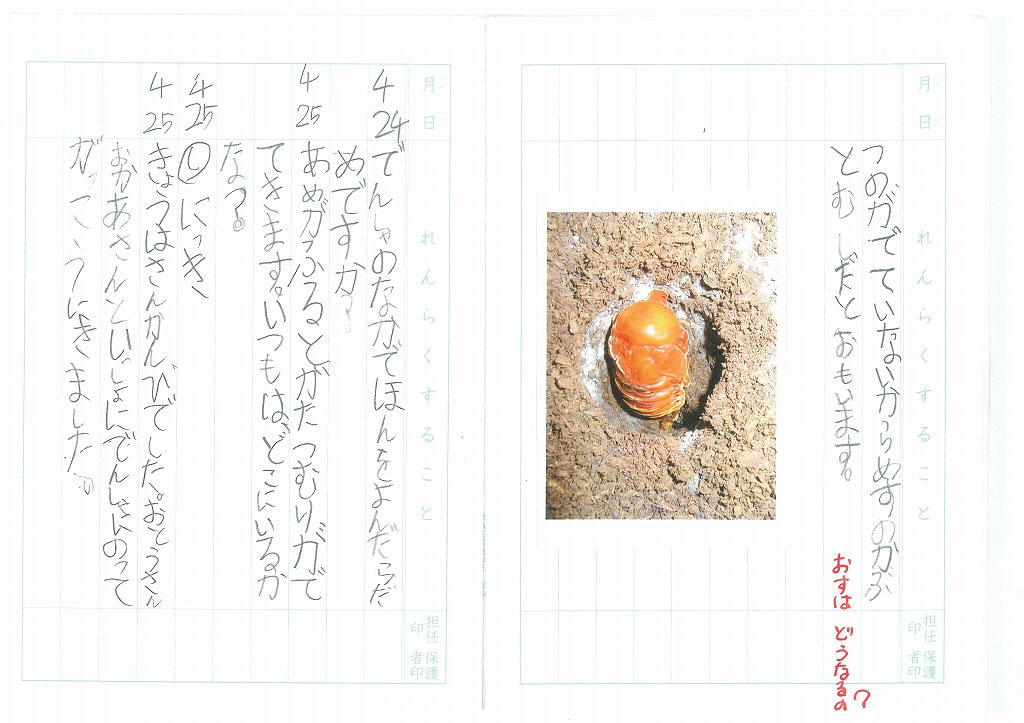 月日
れんらくすること
担任印
保護者印
つのがでていないからめすのかぶ
とむしだとおもいます。
おすは どうなるの?
月日
れんらくすること
担任印
保護者印
4 24 でんしゃのなかでほんをよんだらだ
めですか。
4 25 あめがふるとがたつむりがで
てきます。いつもは、どこにいるか
な。
4 25 にっき
4 25 きょうはさんかんびでした。おとうさん
おかあさんといっしょにでんしゃにのって
がっこうにきました。